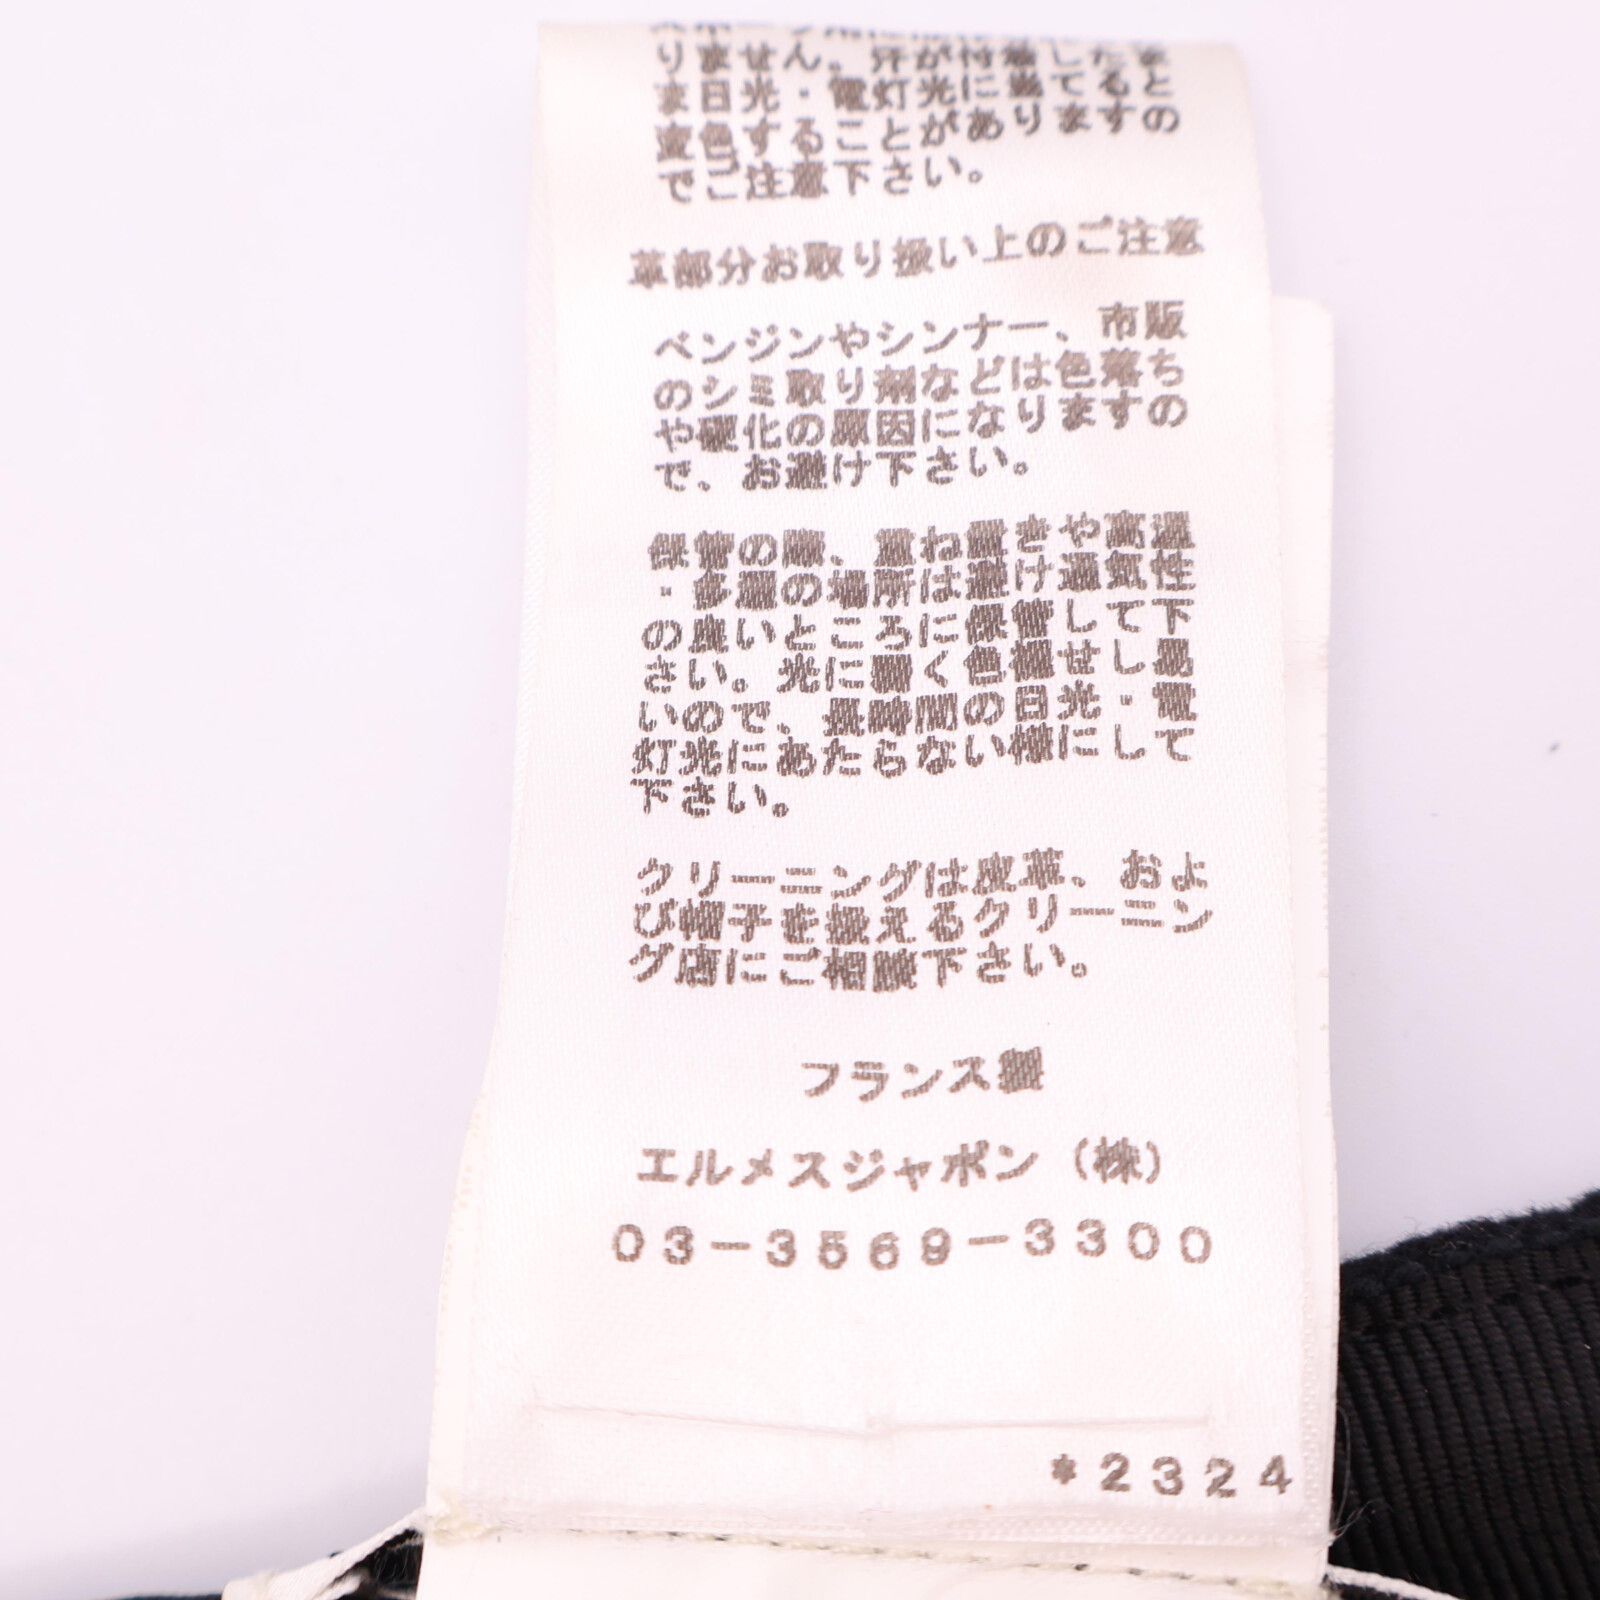 りません。汗が付着したま
ま日光・電灯光に当てると
変色することがありますの
でご注意下さい。
革部分お取り扱い上のご注意
ベンジンやシンナー、市販
のシミ取り剤などは色落ち
や硬化の原因になりますの
で、お避け下さい。
保管の際、重ね置きや高温
・多湿の場所は避け通気性
の良いところに保管して下
さい。光に弱く色褪せし易
いので、長時間の日光・電
灯光にあたらない様にして
下さい。
クリーニングは皮革、およ
び帽子を扱えるクリーニン
グ店にご相談下さい。
フランス製
エルメスジャポン（株）
03-3569-3300
*2324